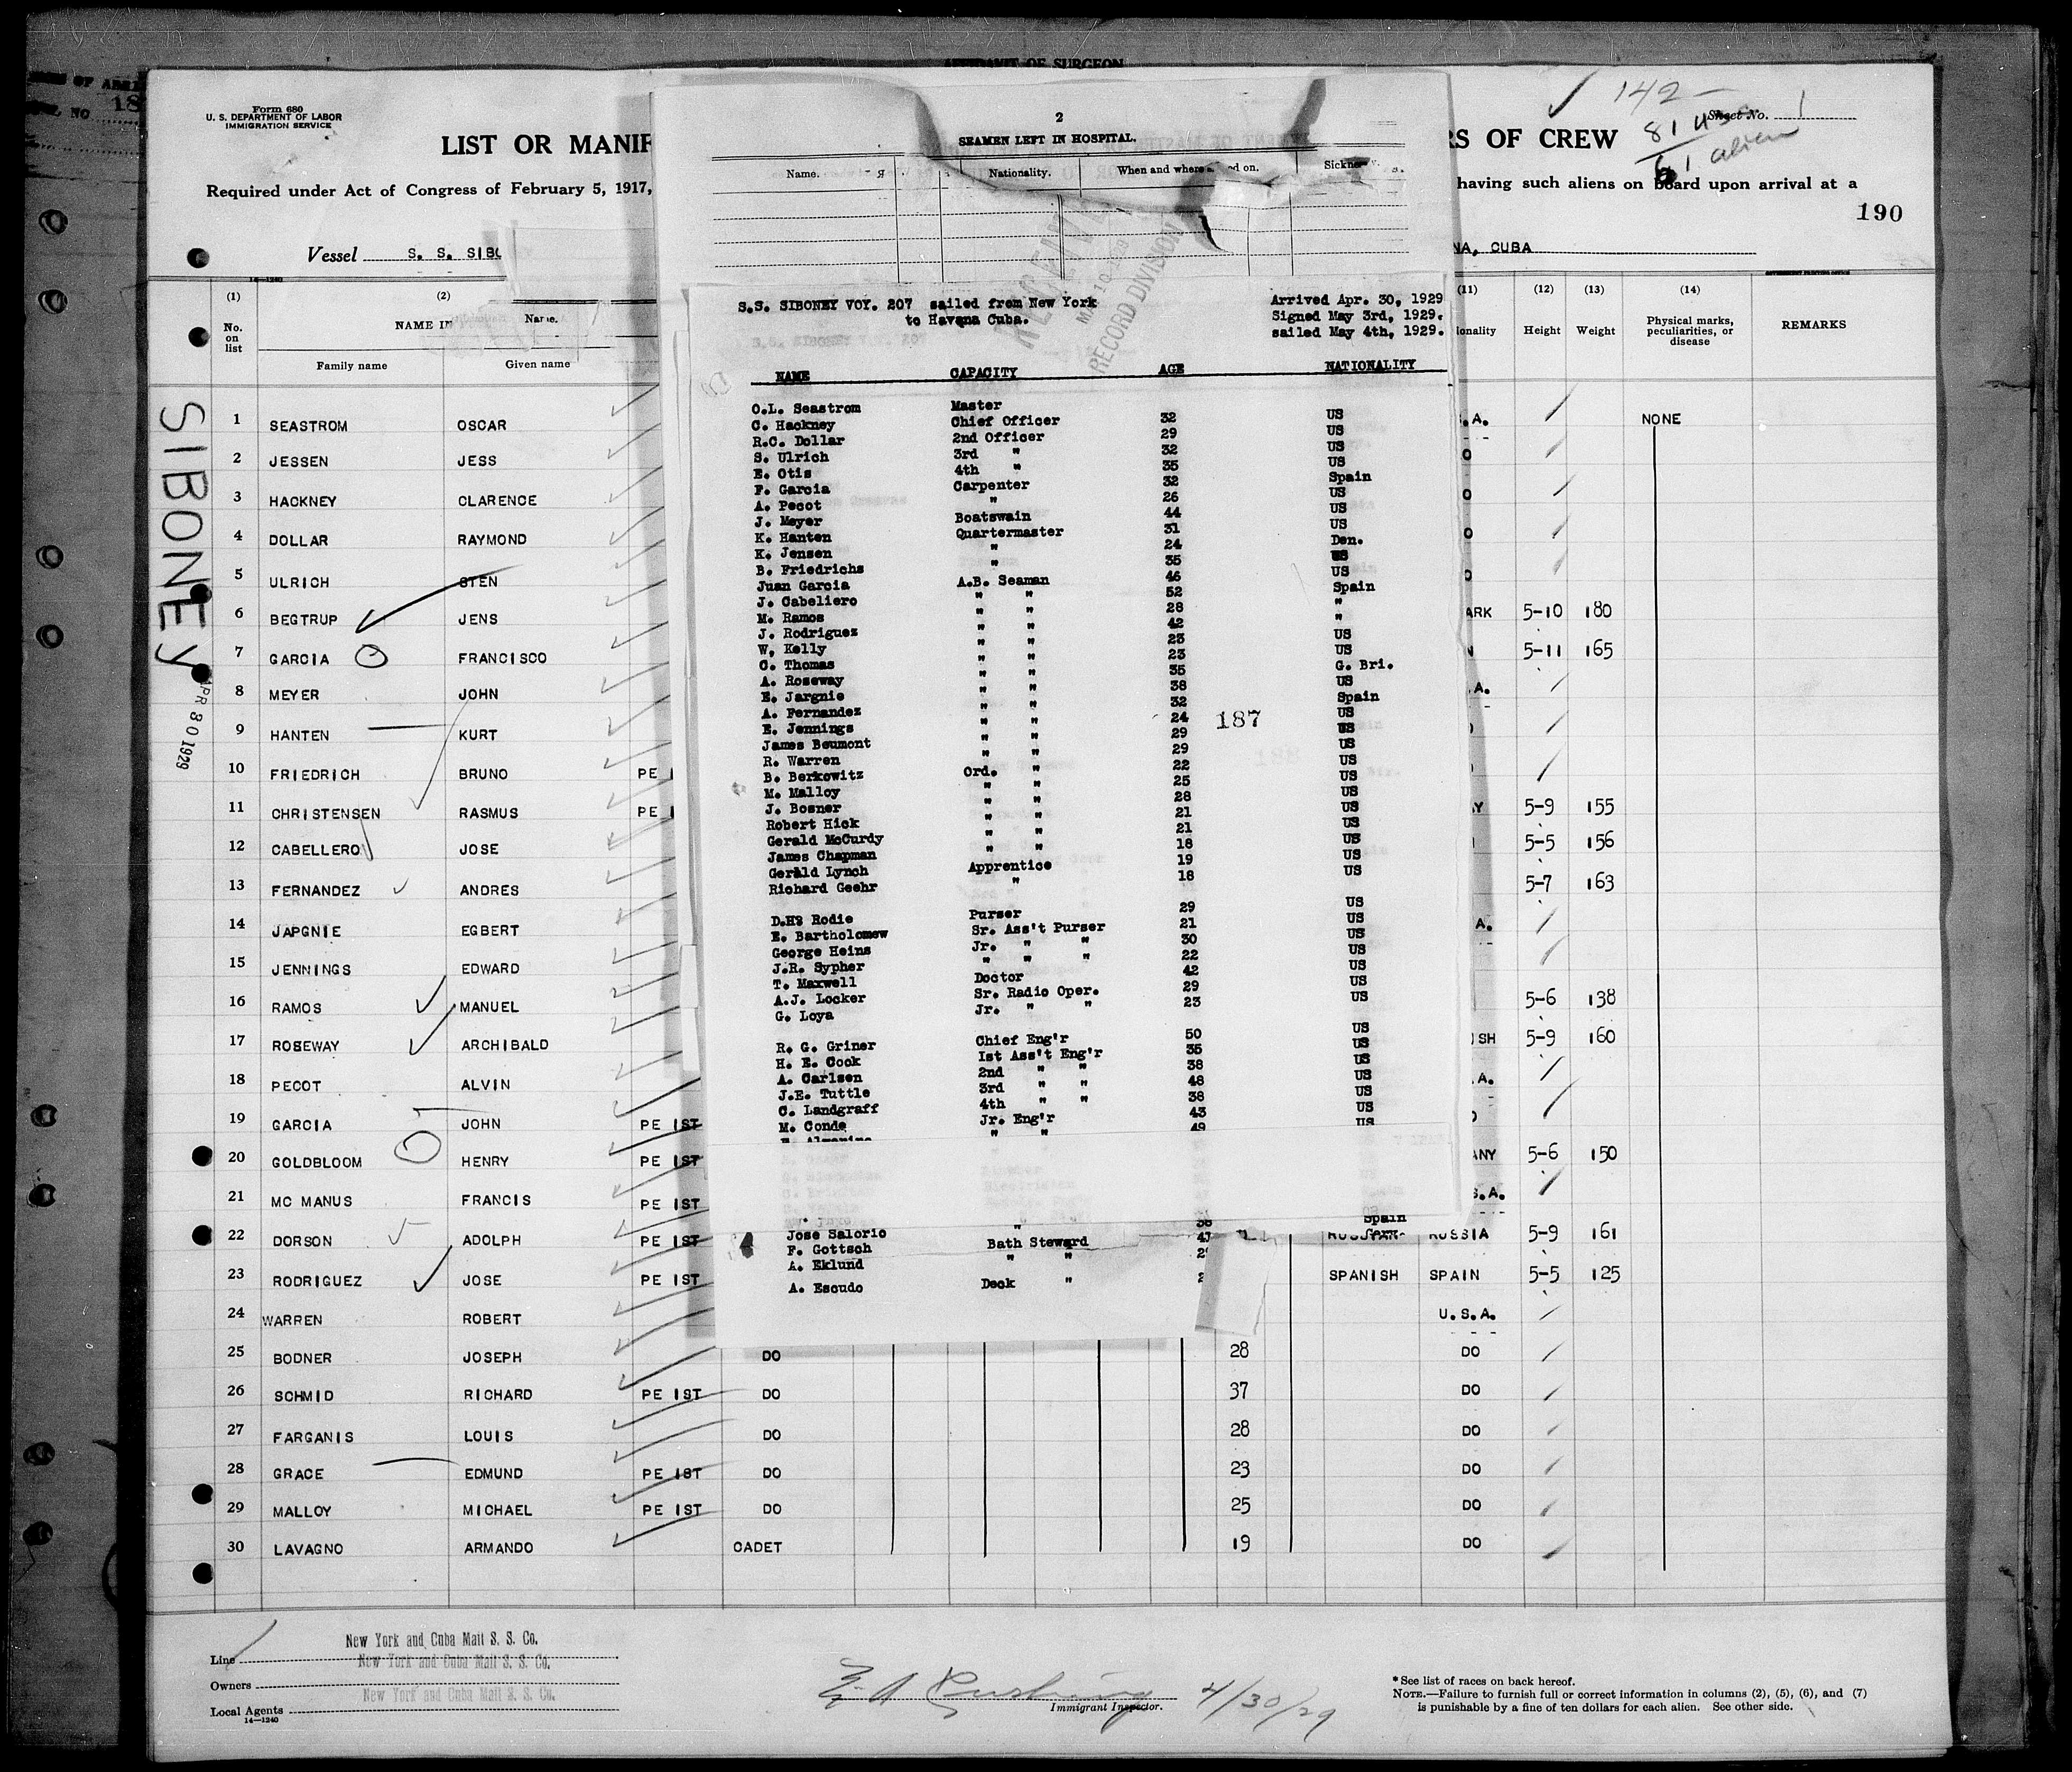 AFFIDAVIT OF SURGEON
Form 680
U. S. DEPARTMENT OF LABOR
IMMIGRATION SERVICE
LIST OR MANIF
RS OF CREW
Sheet No. 1
142-
81 US
61 alien
Required under Act of Congress of February 5, 1917,
having such aliens on board upon arrival at a
190
Vessel S. S. SIBO
NA, CUBA
2
SEAMEN LEFT IN HOSPITAL.
Name. Nationality. When and where
RECORD DIVISION
S.S. SIBONEY VOY. 207 sailed from New York
to Havana Cuba.
Arrived Apr. 30, 1929
Signed May 3rd, 1929.
sailed May 4th, 1929.
NAME CAPACITY AGE NATIONALITY
O.L. Seastrom Master
C. Hackney Chief Officer 32 US
R.C. Dollar 2nd Officer 29 US
S. Ulrich 3rd " 32 US
E. Otis 4th " 35 US
F. Garcia Carpenter 32 Spain
A. Pecot " 26 US
J. Meyer Boatswain 44 US
K. Hanten Quartermaster 31 US
K. Jensen " 24 Den.
B. Friedrichs " 35 US
Juan Garcia A.B. Seaman 46 US
J. Cabeliero " " 52 Spain
M. Ramos " " 28 "
J. Rodriguez " " 42 "
W. Kelly " " 23 US
C. Thomas " " 23 US
A. Roseway " " 35 G. Bri.
E. Jargnie " " 38 US
A. Fernandez " " 32 Spain
E. Jennings " " 24 US
James Beumont " " 29 US
R. Warren " " 29 US
B. Berkowitz Ord. " 22 US
M. Malloy " " 25 US
J. Bosner " " 28 US
Robert Hick " " 21 US
Gerald McCurdy " " 21 US
James Chapman " " 18 US
Gerald Lynch Apprentice 19 US
Richard Geehr " 18 US
187
D.H. Rodie Purser 29 US
E. Bartholomew Sr. Ass't Purser 21 US
George Heins Jr. " " 30 US
J.R. Sypher " " " 22 US
T. Maxwell Doctor 42 US
A.J. Locker Sr. Radio Oper. 29 US
G. Loya Jr. " " 23 US
R. G. Griner Chief Eng'r 50 US
H. E. Cook 1st Ass't Eng'r 35 US
A. Carlsen 2nd " " 38 US
J.E. Tuttle 3rd " " 48 US
C. Landgraff 4th " " 38 US
M. Conde Jr. Eng'r 43 US
" " 49 US
38 Spain
Jose Salorio "
F. Gottsch Bath Steward
A. Eklund " "
A. Escudo Deck "
(1) No. on list
(2) NAME IN
Name.
Family name Given name
(11) (12) Height (13) Weight
(14) Physical marks, peculiarities, or disease
REMARKS
SIBONEY
APR 30 1929
1 SEASTROM OSCAR NONE
2 JESSEN JESS
3 HACKNEY CLARENCE
4 DOLLAR RAYMOND
5 ULRICH STEN
6 BEGTRUP JENS ARK 5-10 180
7 GARCIA FRANCISCO 5-11 165
8 MEYER JOHN
9 HANTEN KURT
10 FRIEDRICH BRUNO PE I
11 CHRISTENSEN RASMUS PE I 5-9 155
12 CABELLERO JOSE 5-5 156
13 FERNANDEZ ANDRES 5-7 163
14 JAPGNIE EGBERT
15 JENNINGS EDWARD
16 RAMOS MANUEL 5-6 138
17 ROSEWAY ARCHIBALD ISH 5-9 160
18 PECOT ALVIN
19 GARCIA JOHN PE IST
20 GOLDBLOOM HENRY PE IST ANY 5-6 150
21 MC MANUS FRANCIS PE IST S.A.
22 DORSON ADOLPH PE IST RUSSIA 5-9 161
23 RODRIGUEZ JOSE PE IST SPANISH SPAIN 5-5 125
24 WARREN ROBERT U.S.A.
25 BODNER JOSEPH DO 28 DO
26 SCHMID RICHARD PE IST DO 37 DO
27 FARGANIS LOUIS DO 28 DO
28 GRACE EDMUND PE IST DO 23 DO
29 MALLOY MICHAEL PE IST DO 25 DO
30 LAVAGNO ARMANDO CADET 19 DO
Line New York and Cuba Mail S. S. Co.
Owners New York and Cuba Mail S. S. Co.
Local Agents New York and Cuba Mail S. S. Co.
14—1240
4/30/29
Immigrant Inspector.
* See list of races on back hereof.
NOTE.—Failure to furnish full or correct information in columns (2), (5), (6), and (7)
is punishable by a fine of ten dollars for each alien. See other side.